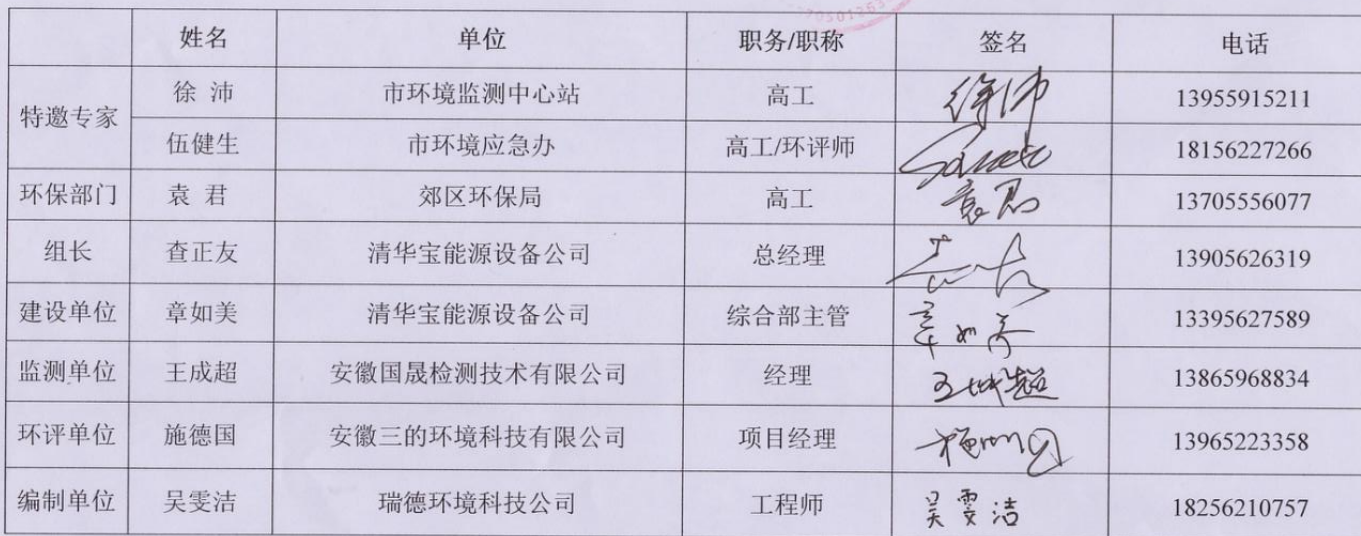 姓名 单位 职务/职称 签名 电话
特邀专家 徐 沛 市环境监测中心站 高工 徐沛 13955915211
伍健生 市环境应急办 高工/环评师 18156227266
环保部门 袁 君 郊区环保局 高工 袁君 13705556077
组长 查正友 清华宝能源设备公司 总经理 13905626319
建设单位 章如美 清华宝能源设备公司 综合部主管 章如美 13395627589
监测单位 王成超 安徽国晟检测技术有限公司 经理 王成超 13865968834
环评单位 施德国 安徽三的环境科技有限公司 项目经理 施德国 13965223358
编制单位 吴雯洁 瑞德环境科技公司 工程师 吴雯洁 18256210757